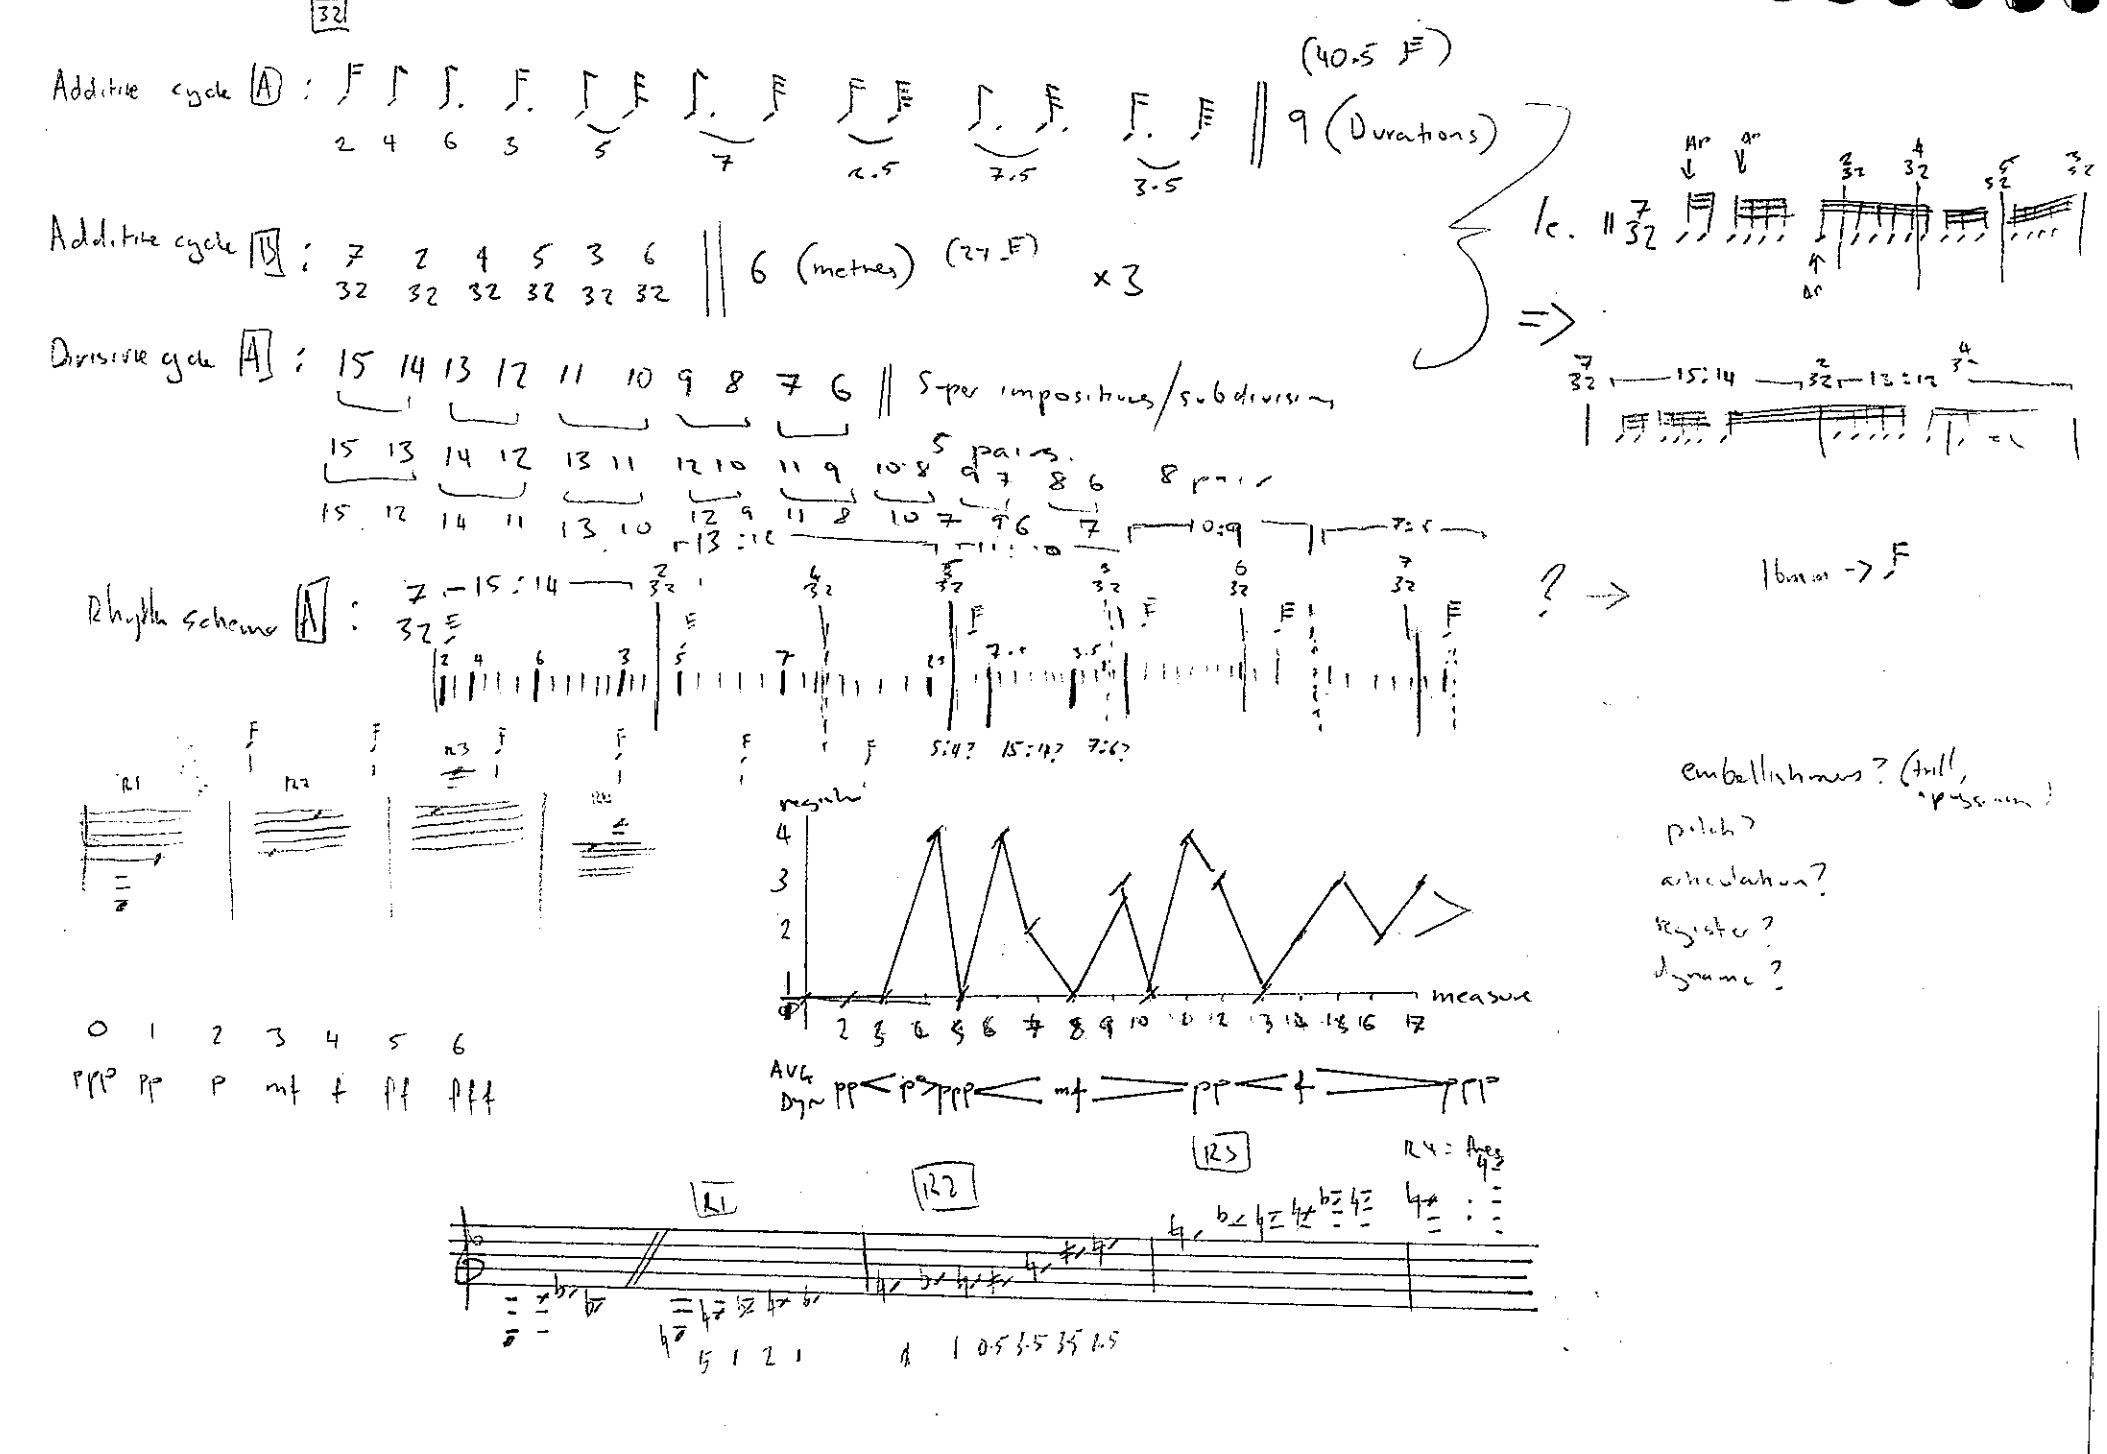 32
(40.5
Additive cycle A :
2 4 6 3 5 7 2.5 7.5 3.5
9 (Durations)
Additive cycle B : 7/32 2/32 4/32 5/32 3/32 6/32 6 (metres) (27 ) x3
Ie. 7/32 2/32 4/32 5/32 3/32
=>
Divisive cycle A : 15 14 13 12 11 10 9 8 7 6 Superimpositions/subdivisions
5 pairs.
15 13 14 12 13 11 12 10 11 9 10 8 9 7 8 6 8 pair
15 12 14 11 13 10 12 9 11 8 10 7 9 6 7
7/32 15:14 2/32 13:12 4/32
13:12 10:9
Rhythm scheme A : 7/32 15:14 2/32 4/32 5/32 3/32 6/32 7/32 ? →
16mm ->
2 4 6 3 5 7 2.5 7.5 3.5
5:4? 15:14? 7:6?
R1 R2 R3
register
4
3
2
1
measure
2 3 4 5 6 7 8 9 10 11 12 13 14 15 16 17
embellishments? (trill,
pitch?
articulation?
register?
dynamic?
0 1 2 3 4 5 6
ppp pp p mf f ff fff
AVG
Dyn pp p ppp mf pp f ppp
R1 R2 R3 R4 =
5 1 2 1 1 1 0.5 3.5 3.5 1.5